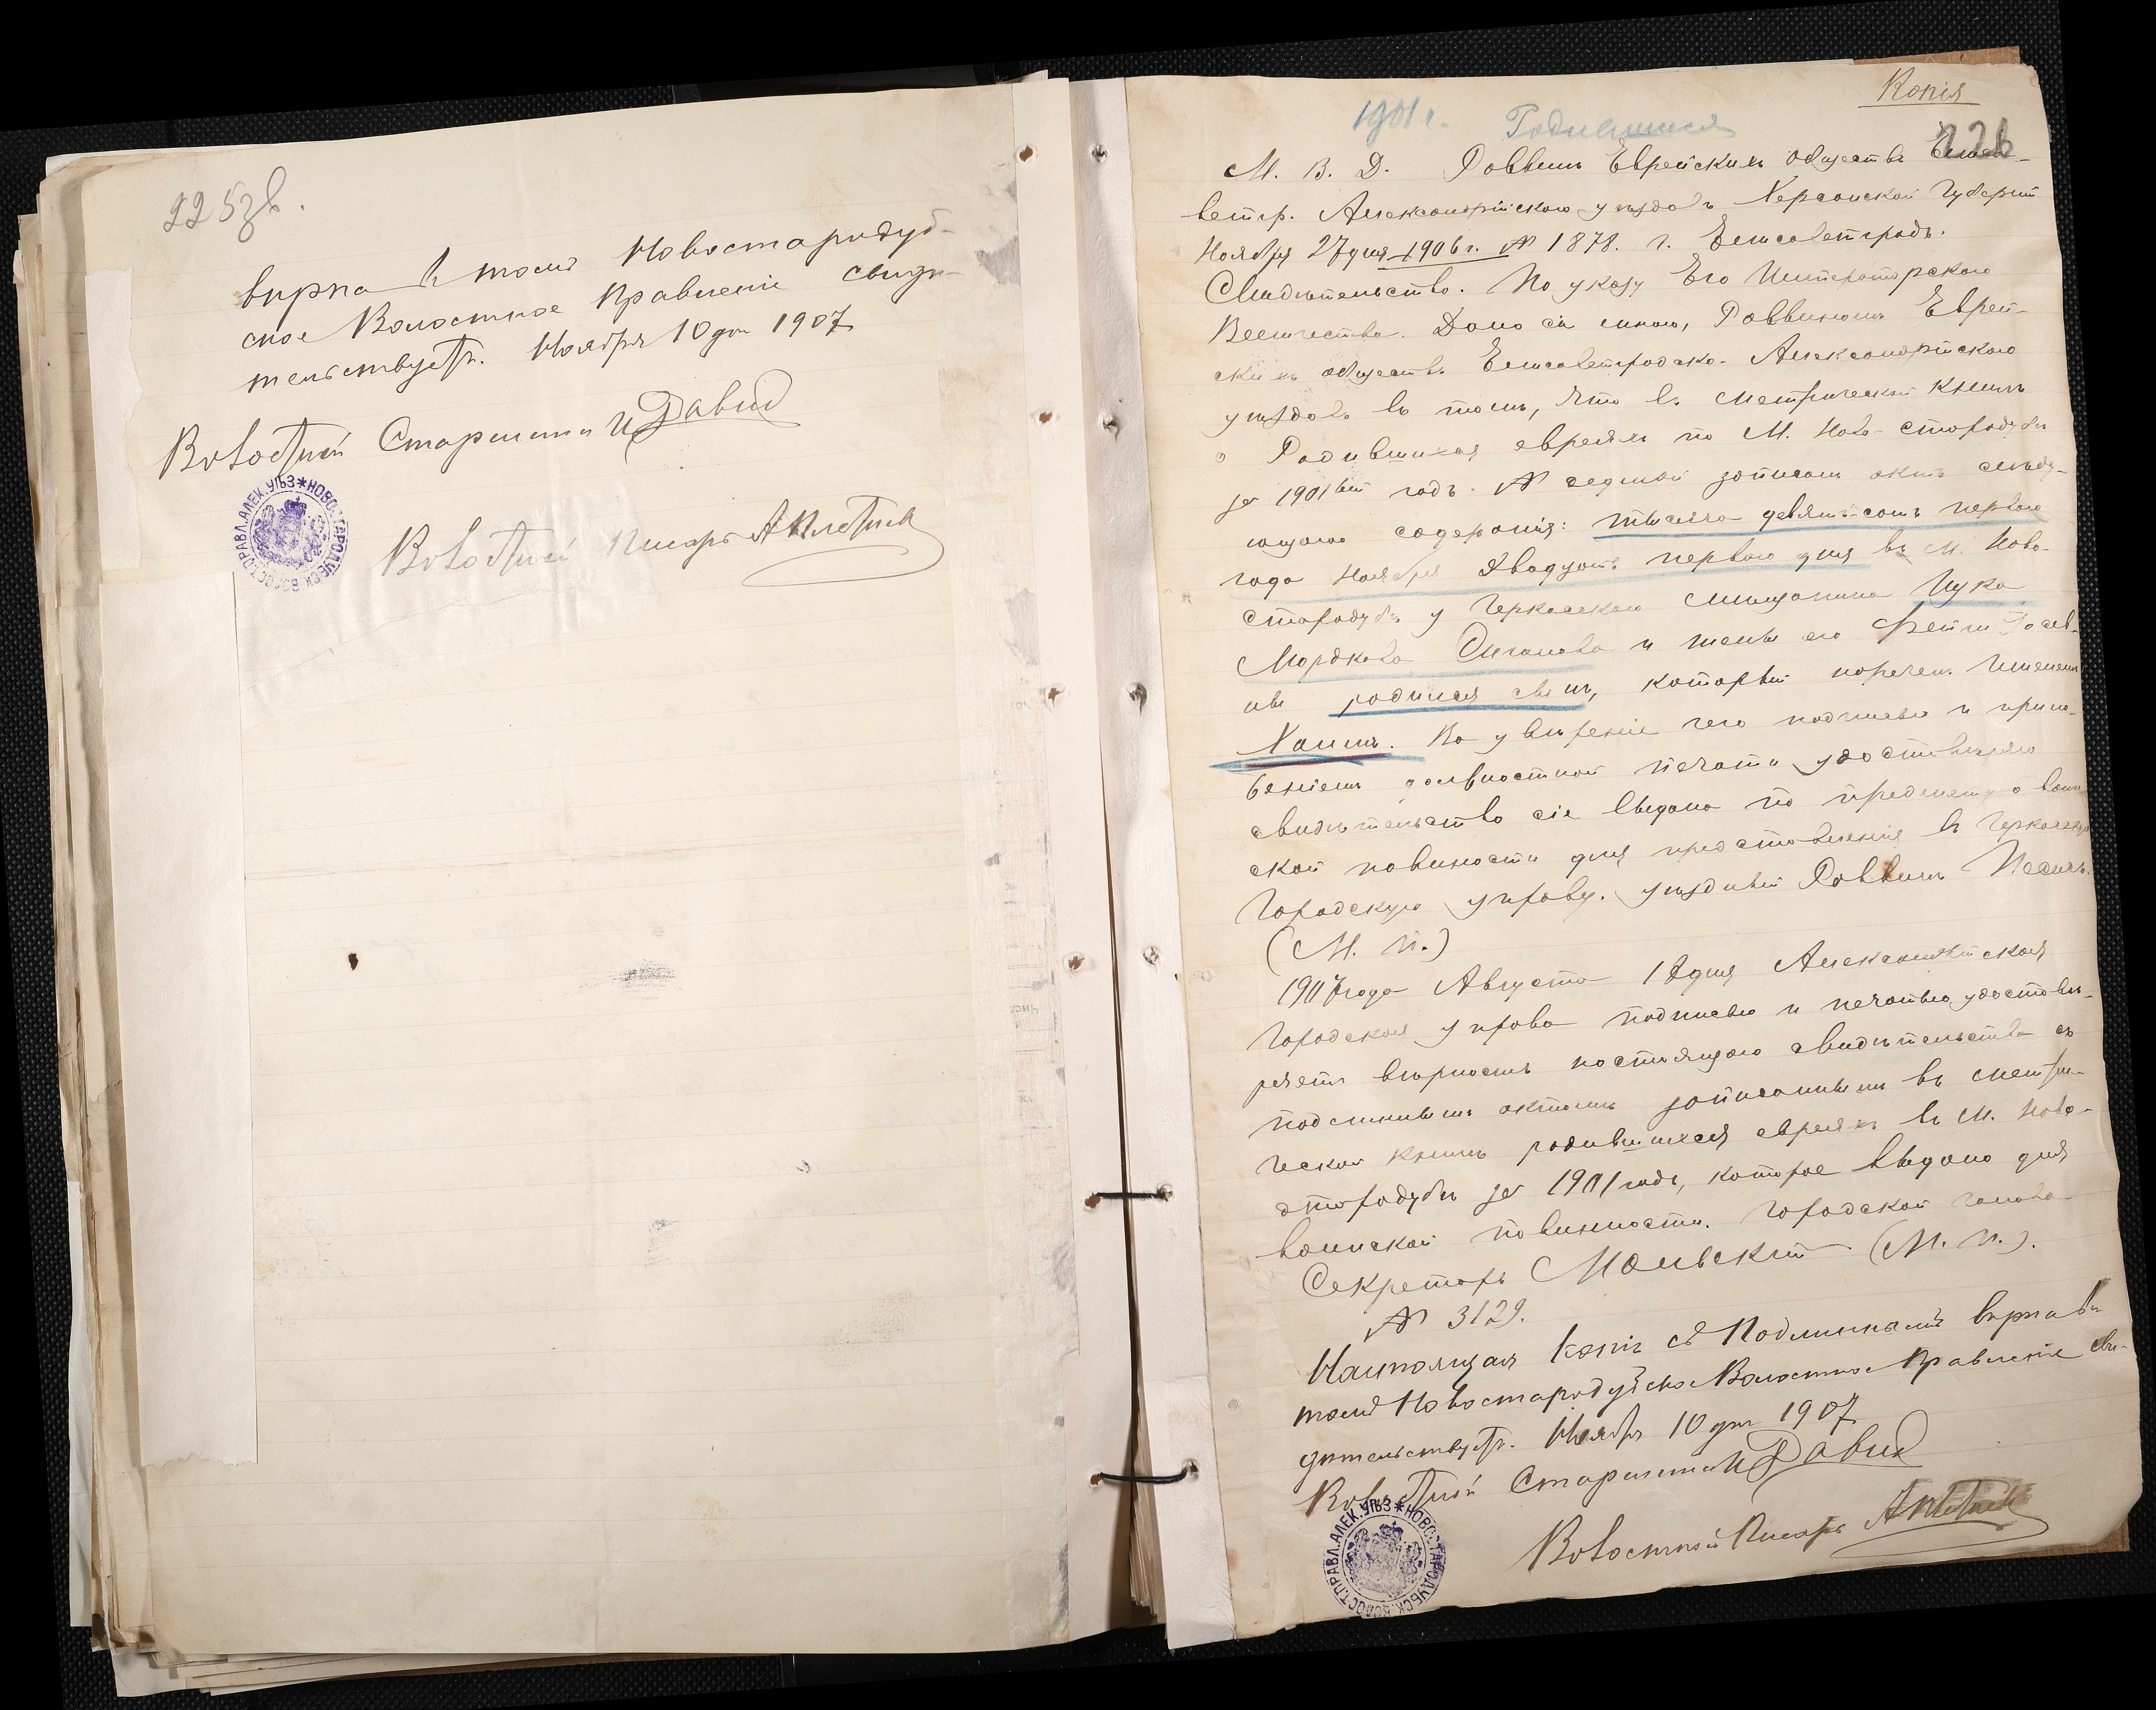 225зв.
вѣрна въ томъ Новостародуб-
ское Волостное Правленіе свидѣ-
тельствуетъ. Ноября 10 дня 1907
Волостной Старшина И Давид
Волостной Писарь
Копія
226
1901 г. Родившиеся
М. В. Д. Раввинъ Еврейскихъ обществъ Елиса-
ветгр. Александрійского уѣздовъ Херсонской Губерніи
Ноября 27 дня 1906 г. № 1878. г. Елисаветградъ.
Свидѣтельство. По указу Его Императорскаго
Величества. Дано сіе мною, Раввиномъ Еврей-
скихъ обществъ Елисаветградско-Александрійского
уѣздовъ въ томъ, что въ метрической книгѣ
о Родившихся евреяхъ по М. Ново-стародубъ
за 1901вый годъ. № седмой записанъ актъ слѣду-
ющаго содержанія: тысяча девятьсотъ перваго
года Ноября Двадцать перваго дня въ М. Ново-
стародубѣ у Черкасскаго мѣщанина Ицка
Мордкова и жены его
родился сынъ, который нареченъ Именемъ
Хаимъ. Во увѣреніе чего подписью и прило-
женіемъ должностной печати удостовѣряю
свидѣтельство сіе выдано по предмету о воин-
ской повиности для представленія въ Черкасскую
Городскую управу. уѣздный Раввинъ
(М. п.)
1907 года Августа дня Александрійская
Городская управа подписью и печатью удостовѣ-
ряетъ вѣрность настоящаго свидѣтельства съ
подлиннымъ актомъ записаннымъ въ метри-
ческой книгѣ родившихся евреяхъ въ М. Ново-
стародубъ за 1901 годъ, которое выдано для
воинской повинности. Городской голова
Секретарь (М. п.).
№ 3129.
Настоящая копія съ Подлинникомъ вѣрна въ
томъ Новостародубское Волостное Правленіе сви-
дѣтельствуетъ. Ноября 10 дня 1907
Волостной Старшина И Давид
Волостной Писарь